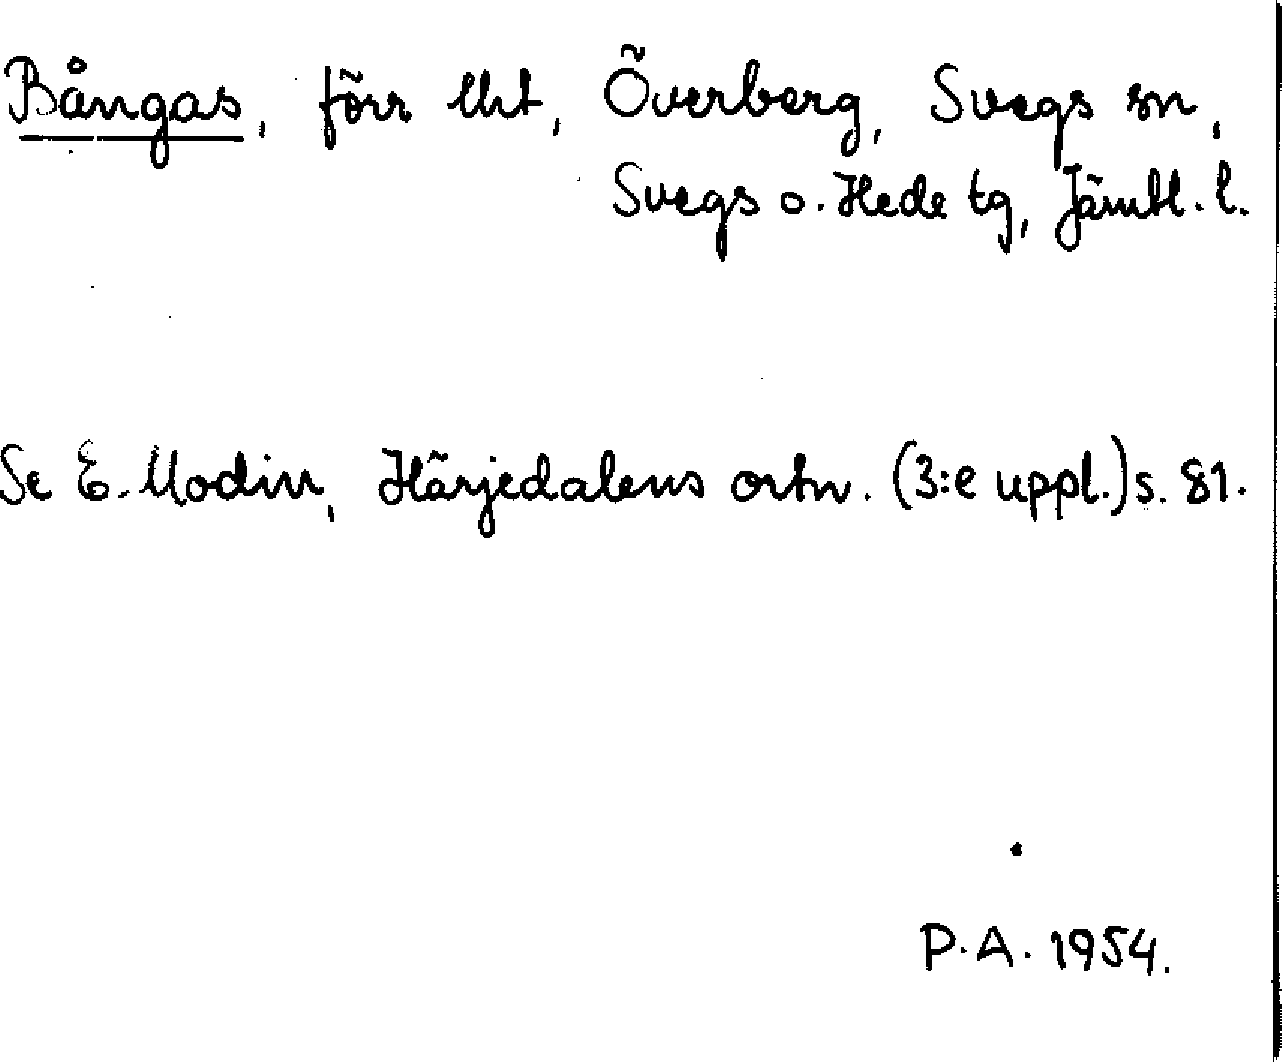 Bångas, förr lht, Överberg, Svegs sn,
Svegs o. Hede tg, Jämtl. l.
Se E. Modin, Härjedalens ortn. (3:e uppl.) s. 81.
P.A. 1954.